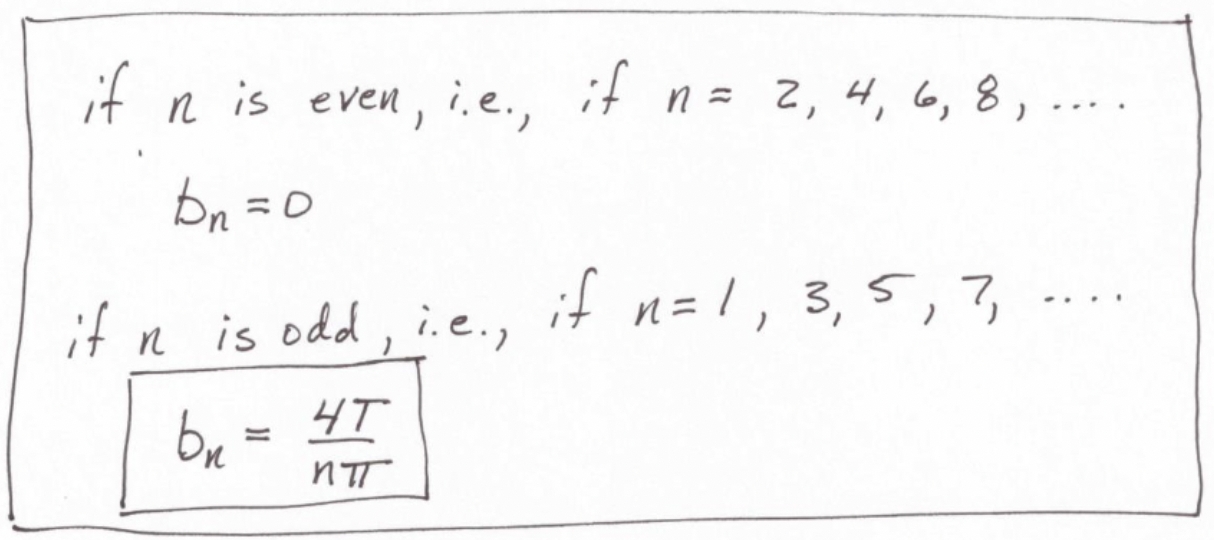 if n is even, i.e., if n = 2, 4, 6, 8, ....
bn = 0
if n is odd, i.e., if n = 1, 3, 5, 7, ....
bn = 4T/nπ